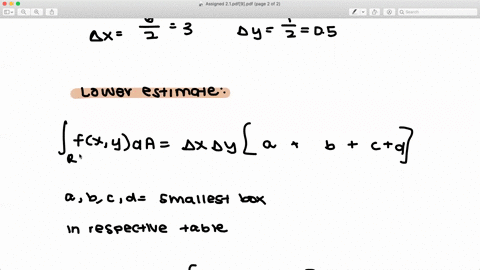 Assigned 2.1.pdf[9].pdf (page 2 of 2)
Search
Δx= 6/2 = 3 Δy= 1/2 = 0.5
Lower estimate:
∫R f(x,y)dA = Δx Δy [a + b + c+d]
a,b,c,d= smallest box
in respective table